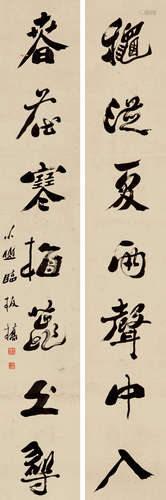 穐從夏雨聲中入
春在寒梅蕊上尋
小臨板橋